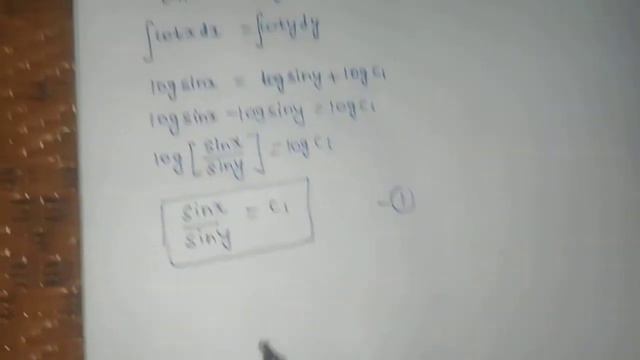 ∫cotx dx = ∫coty dy
logsinx = logsiny + logc₁
logsinx - logsiny = logc₁
log[sinx/siny] = logc₁
sinx/siny = c₁ -①